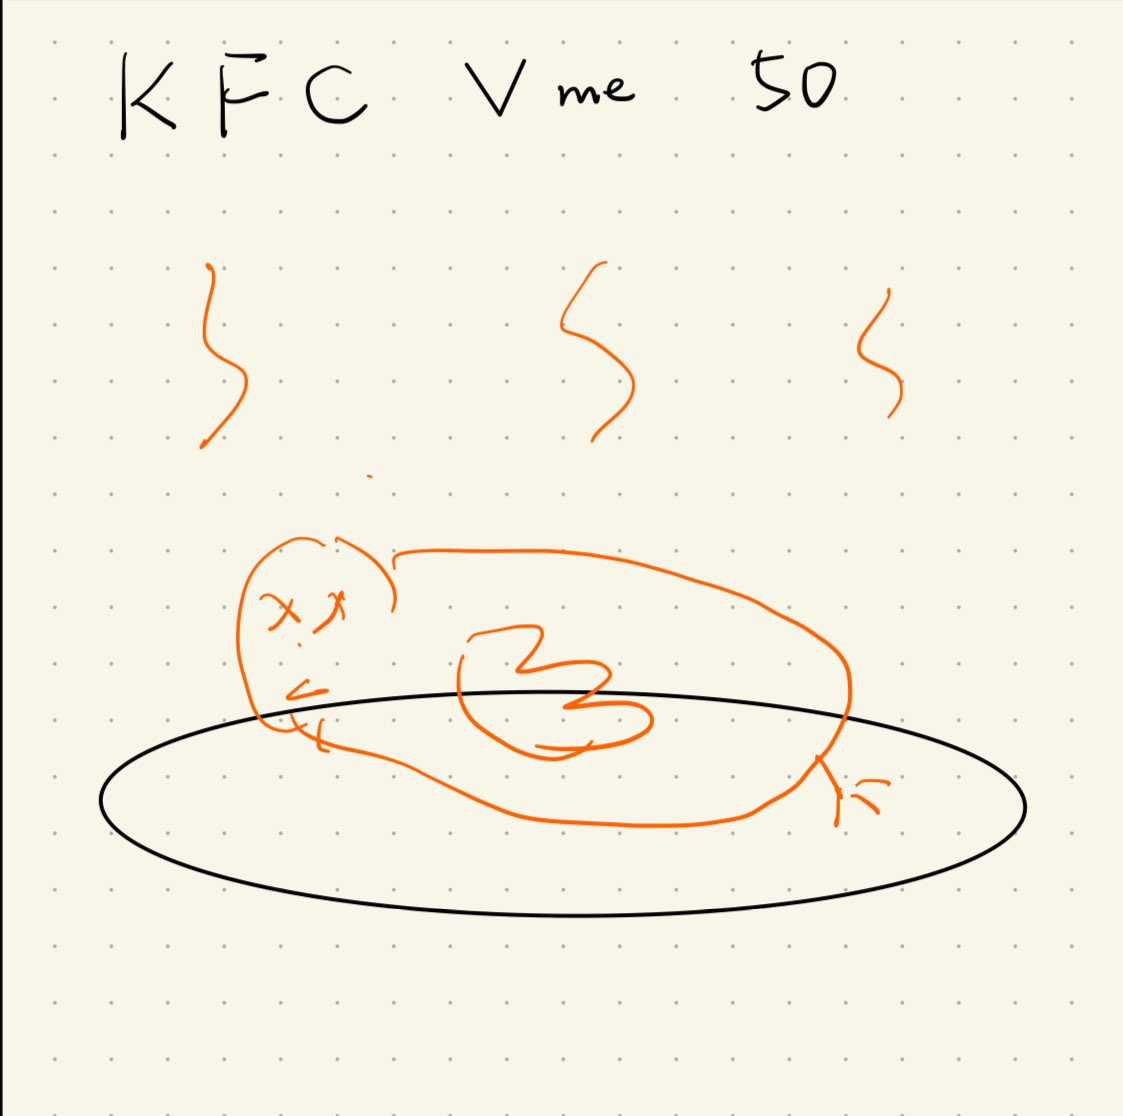 KFC V me 50